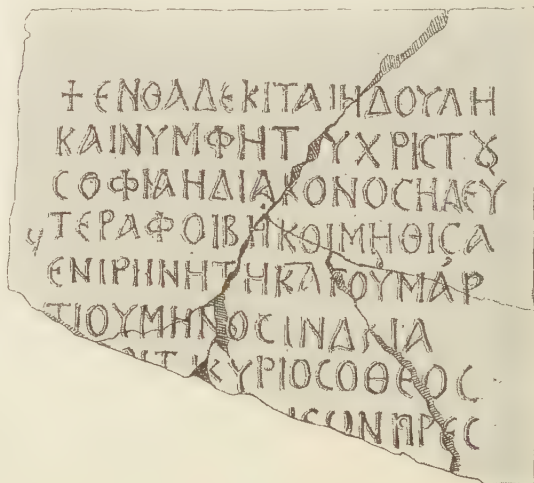 ✝ ΕΝΘΑΔΕΚΙΤΑΙΗΔΟΥΛΗ
ΚΑΙΝΥΜΦΗΤ ΥΧΡΙϹΤȢ
ϹΟΦΙΑΗΔΙΑΚΟΝΟϹΗΔΕΥ
ΤΕΡΑΦΟΙΒΗΚΟΙΜΗΘΙϹΑ
ΕΝΙΡΗΝΗΤΗΚΑΤΟΥΜΑΡ
ΤΙΟΥΜΗΝΟϹΙΝΔΚΙΑ
ΚΥΡΙΟϹΟΘΕΟϹ
ϹΩΝΠΡΕϹ